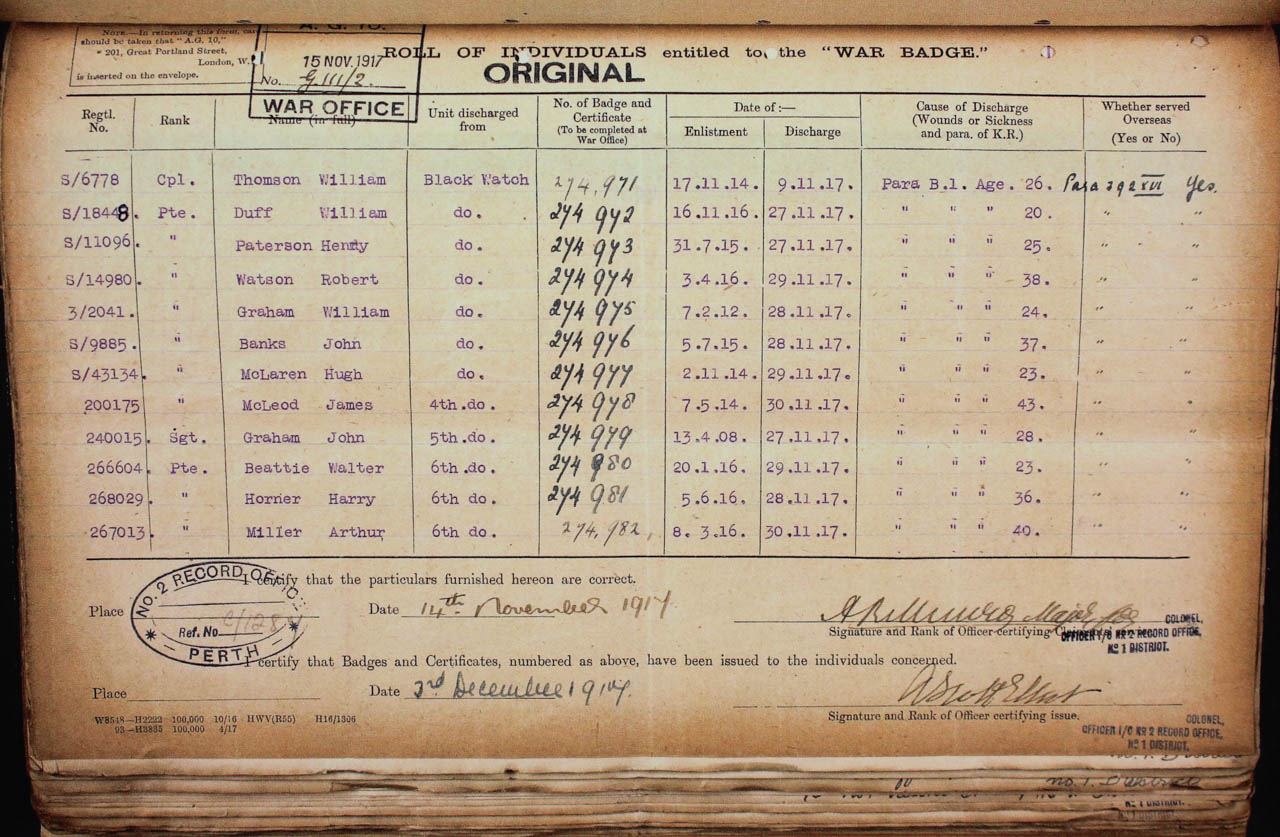 NOTE.—In returning this form, car
should be taken that "A.G. 10,"
201, Great Portland Street,
London, W.
is inserted on the envelope.
A. G. 10.
15 NOV. 1917
No. G.111/2.
WAR OFFICE
ROLL OF INDIVIDUALS entitled to the "WAR BADGE."
ORIGINAL
Regtl. No. Rank Name (in full) Unit discharged from No. of Badge and Certificate (To be completed at War Office) Date of :— Enlistment Discharge Cause of Discharge (Wounds or Sickness and para. of K.R.) Whether served Overseas (Yes or No)
S/6778 Cpl. Thomson William Black Watch 274,971 17.11.14. 9.11.17. Para B.1. Age. 26. Para 392 XVI Yes.
S/18448. Pte. Duff William do. 274 972 16.11.16. 27.11.17. " " " 20. " "
S/11096. " Paterson Henry do. 274 973 31.7.15. 27.11.17. " " " 25. " "
S/14980. " Watson Robert do. 274 974 3.4.16. 29.11.17. " " " 38. " "
3/2041. " Graham William do. 274 975 7.2.12. 28.11.17. " " " 24. " "
S/9885. " Banks John do. 274 976 5.7.15. 28.11.17. " " " 37. " "
S/43134. " McLaren Hugh do. 274 977 2.11.14. 29.11.17. " " " 23. " "
200175 " McLeod James 4th.do. 274 978 7.5.14. 30.11.17. " " " 43. " "
240015. Sgt. Graham John 5th.do. 274 979 13.4.08. 27.11.17. " " " 28. " "
266604. Pte. Beattie Walter 6th.do. 274 980 20.1.16. 29.11.17. " " " 23. " "
268029. " Horner Harry 6th do. 274 981 5.6.16. 28.11.17. " " " 36. " "
267013. " Miller Arthur 6th do. 274,982, 8. 3.16. 30.11.17. " " " 40. " "
I certify that the particulars furnished hereon are correct.
Place Date 14th November 1917
NO. 2 RECORD OFFICE
Ref. No. C/128
PERTH
Major for
Signature and Rank of Officer certifying
COLONEL,
OFFICER I/C Nº 2 RECORD OFFICE,
Nº 1 DISTRICT.
I certify that Badges and Certificates, numbered as above, have been issued to the individuals concerned.
Place Date 3rd December 1917.
A Scott Elliot
Signature and Rank of Officer certifying issue.
COLONEL,
OFFICER I/C Nº 2 RECORD OFFICE,
Nº 1 DISTRICT.
W8548—H2222 100,000 10/16 HWV(R55) H16/1306
93—H3835 100,000 4/17
No. 1. District
Nº 1 DISTRICT.